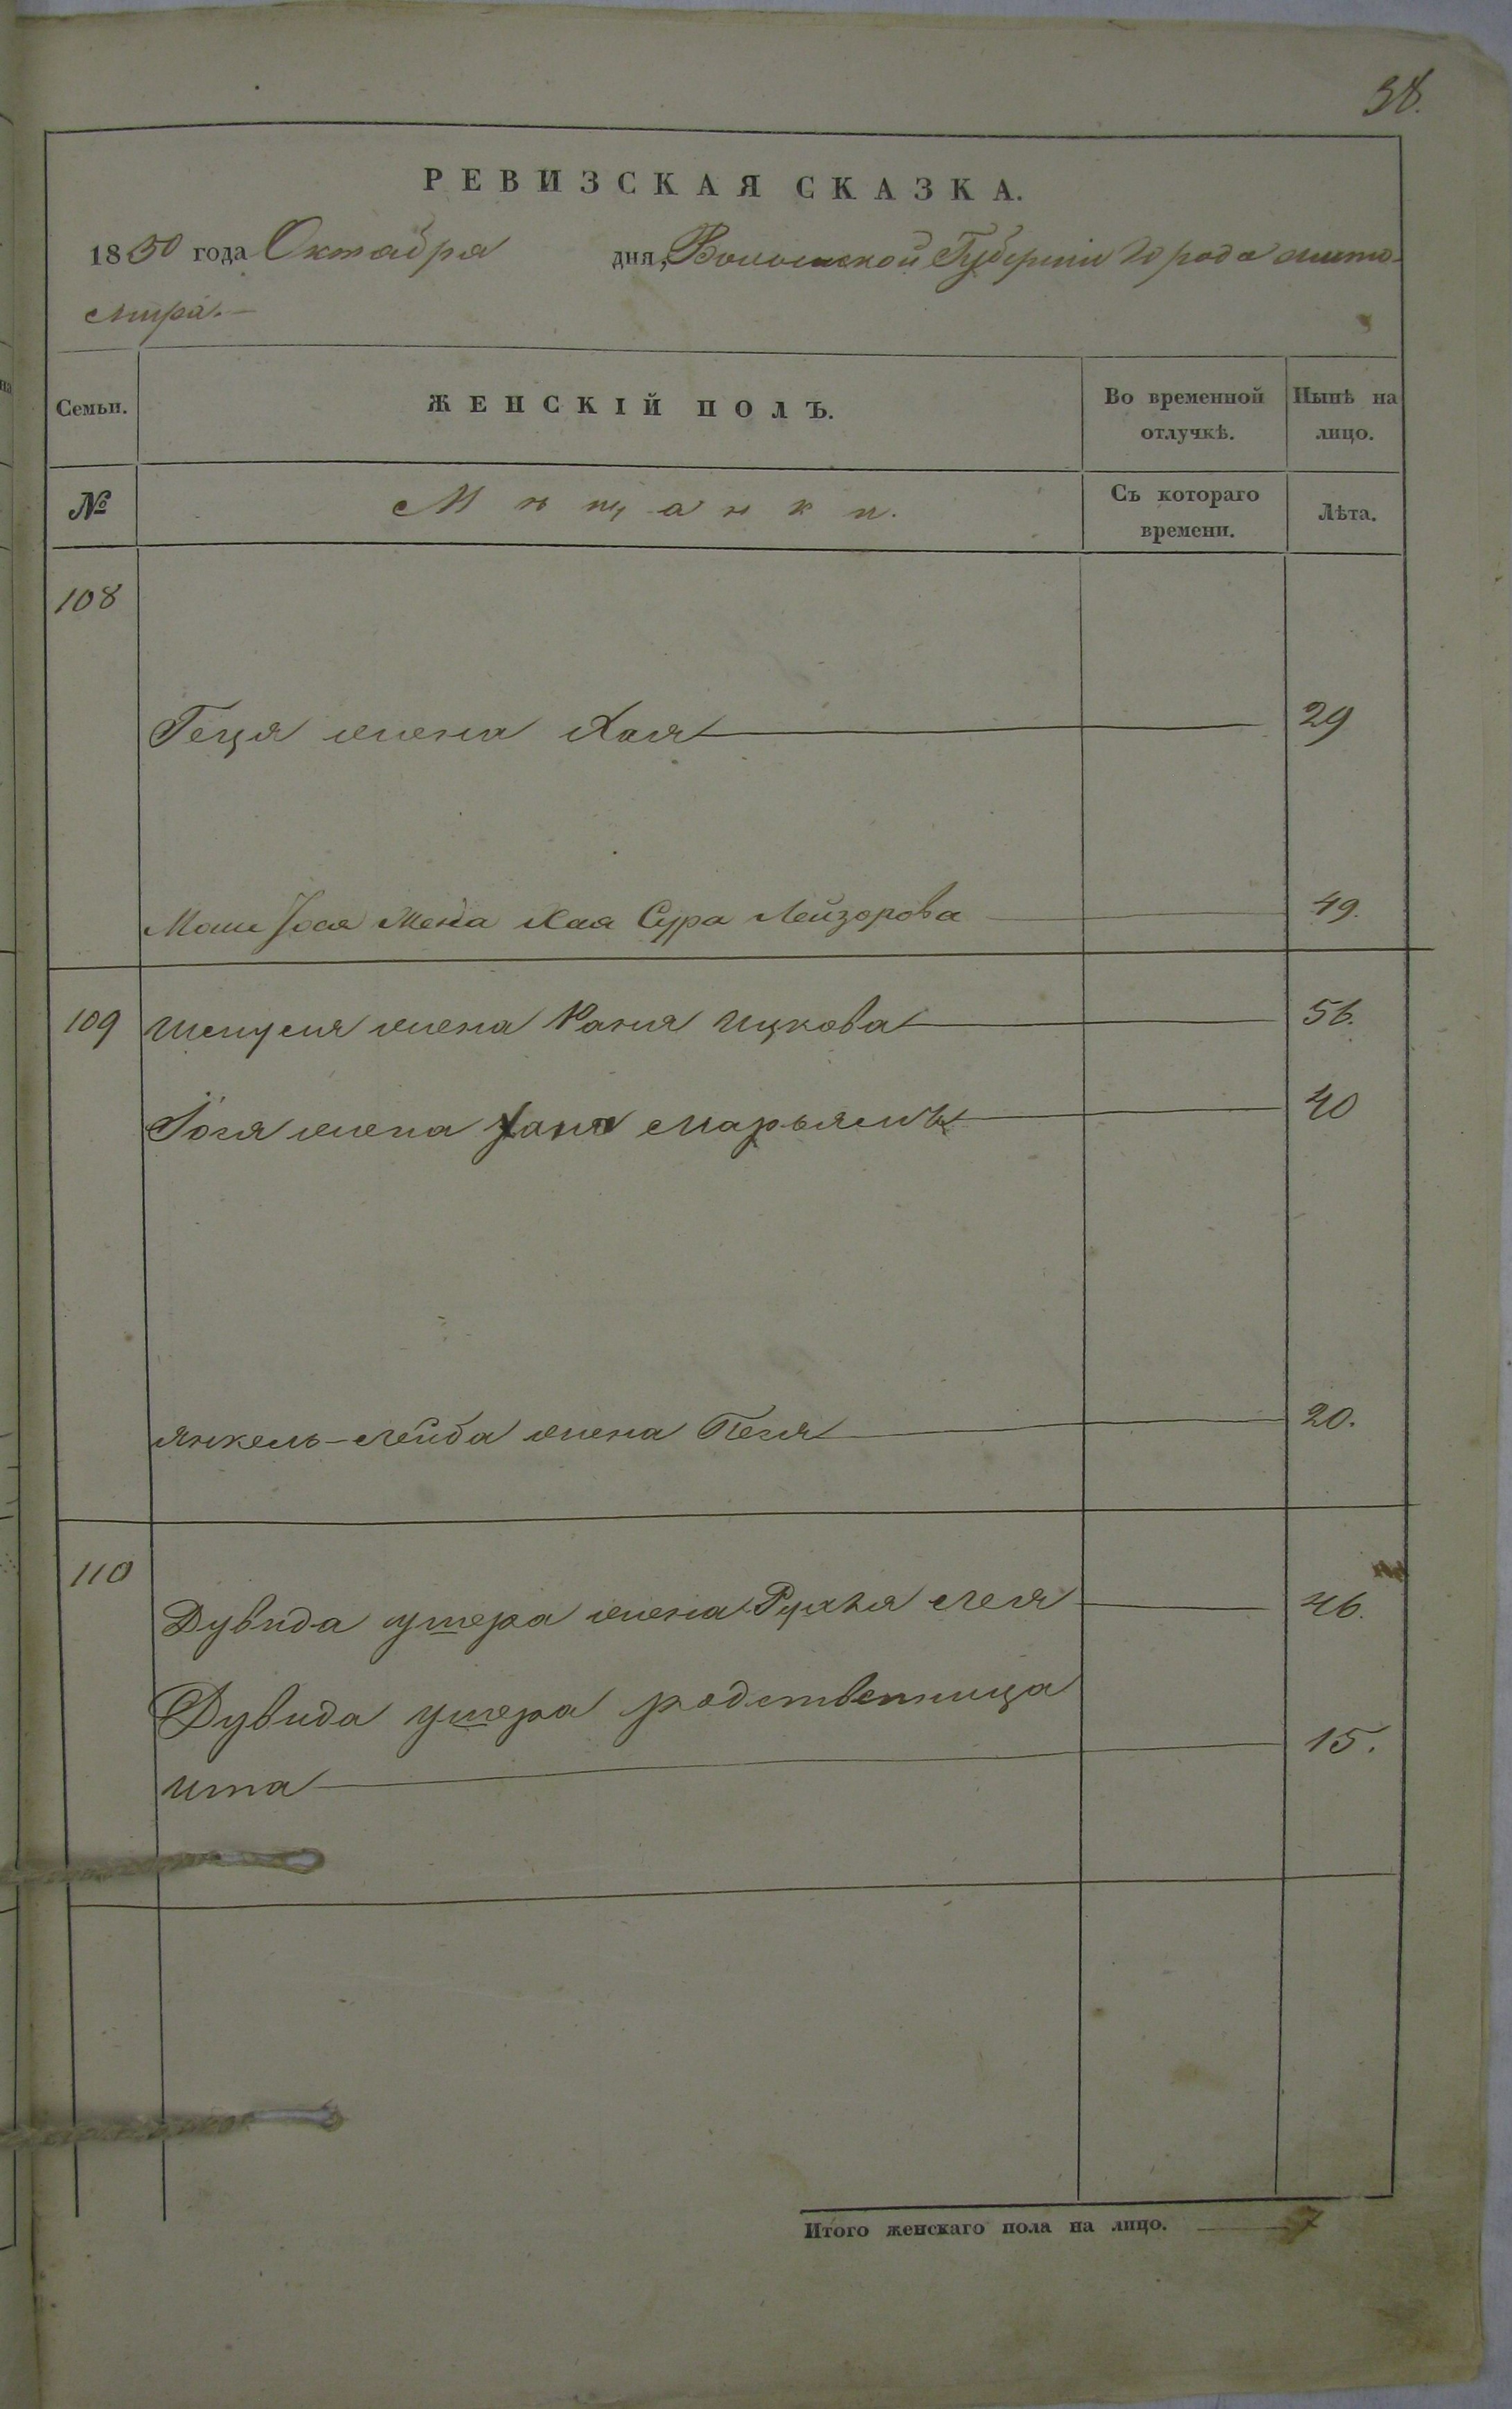 38.
РЕВИЗСКАЯ СКАЗКА.
1850 года Октября дня, Волынской Губерніи Города Жито-
мира.
Семьи. ЖЕНСКІЙ ПОЛЪ. Во временной отлучкѣ. Нынѣ на лицо.
№ Мѣщанки. Съ котораго времени. Лѣта.
108
Геця жена Хая 29
Моші Іося жена Хая Сура Лейзорова 49.
109 Шмуля жена Раня Ицкова 56.
Іося жена Ханя Марьямъ 40
Янкель-Лейба жена Песя 20.
110
Дувида Ушера жена Рухля Лея 46.
Дувида Ушера родственница
Ита 15.
Итого женскаго пола на лицо. 7